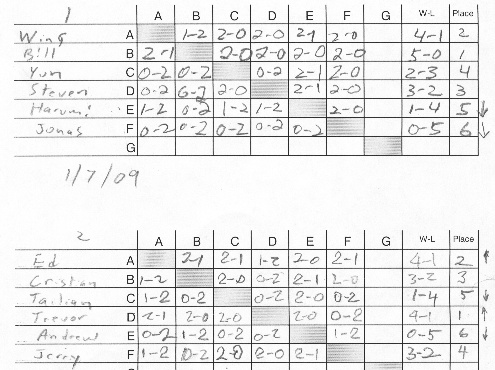 1
A B C D E F G W-L Place
Wing A 1-2 2-0 2-0 2-1 2-0 4-1 2
Bill B 2-1 2-0 2-0 2-0 2-0 5-0 1
Yun C 0-2 0-2 0-2 2-1 2-0 2-3 4
Steven D 0-2 0-2 2-0 2-1 2-0 3-2 3
Harumi E 1-2 0-2 1-2 1-2 2-0 1-4 5 ↓
Jonas F 0-2 0-2 0-2 0-2 0-2 0-5 6 ↓
G
1/7/09
2
A B C D E F G W-L Place
Ed A 2-1 2-1 1-2 2-0 2-1 4-1 2 ↑
Cristian B 1-2 2-0 0-2 2-1 2-0 3-2 3
C 1-2 0-2 0-2 2-0 0-2 1-4 5 ↓
Trevor D 2-1 2-0 2-0 2-0 0-2 4-1 1 ↑
Andrew E 0-2 1-2 0-2 0-2 1-2 0-5 6 ↓
Jerry F 1-2 0-2 2-0 2-0 2-1 3-2 4